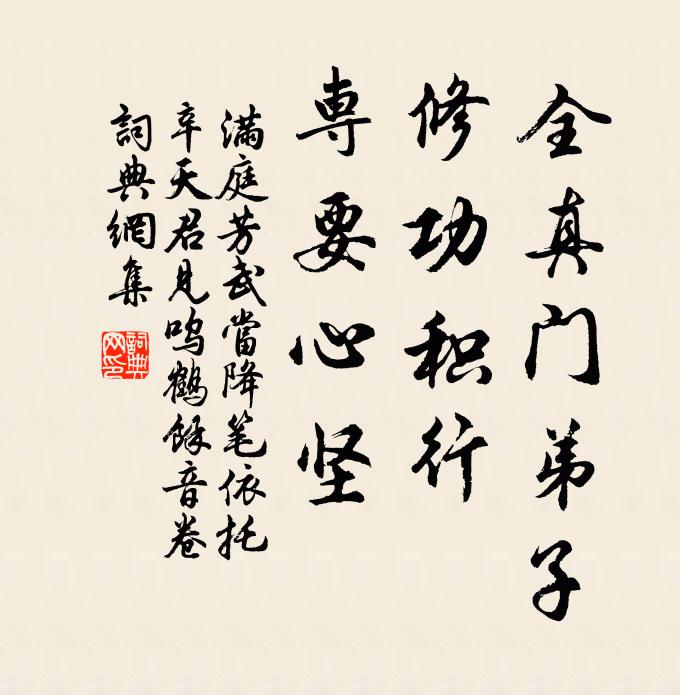 全真门弟子
修功积行
専要心坚
滿庭芳武當降笔依托
辛天君见鸣鶴餘音卷
詞典網集
詞典网印